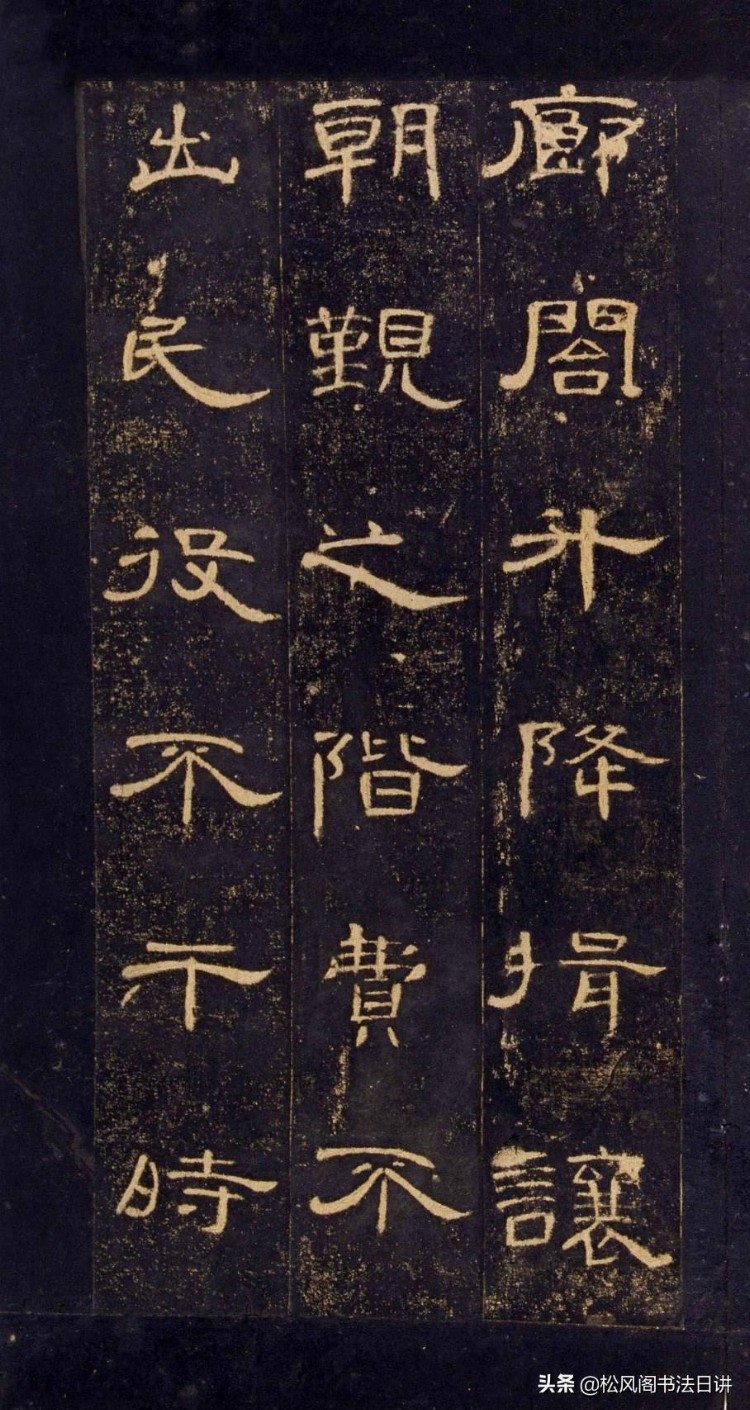 廊閤升降揖讓
朝覲之階費不
出民役不干時
头条 @松风阁书法日讲